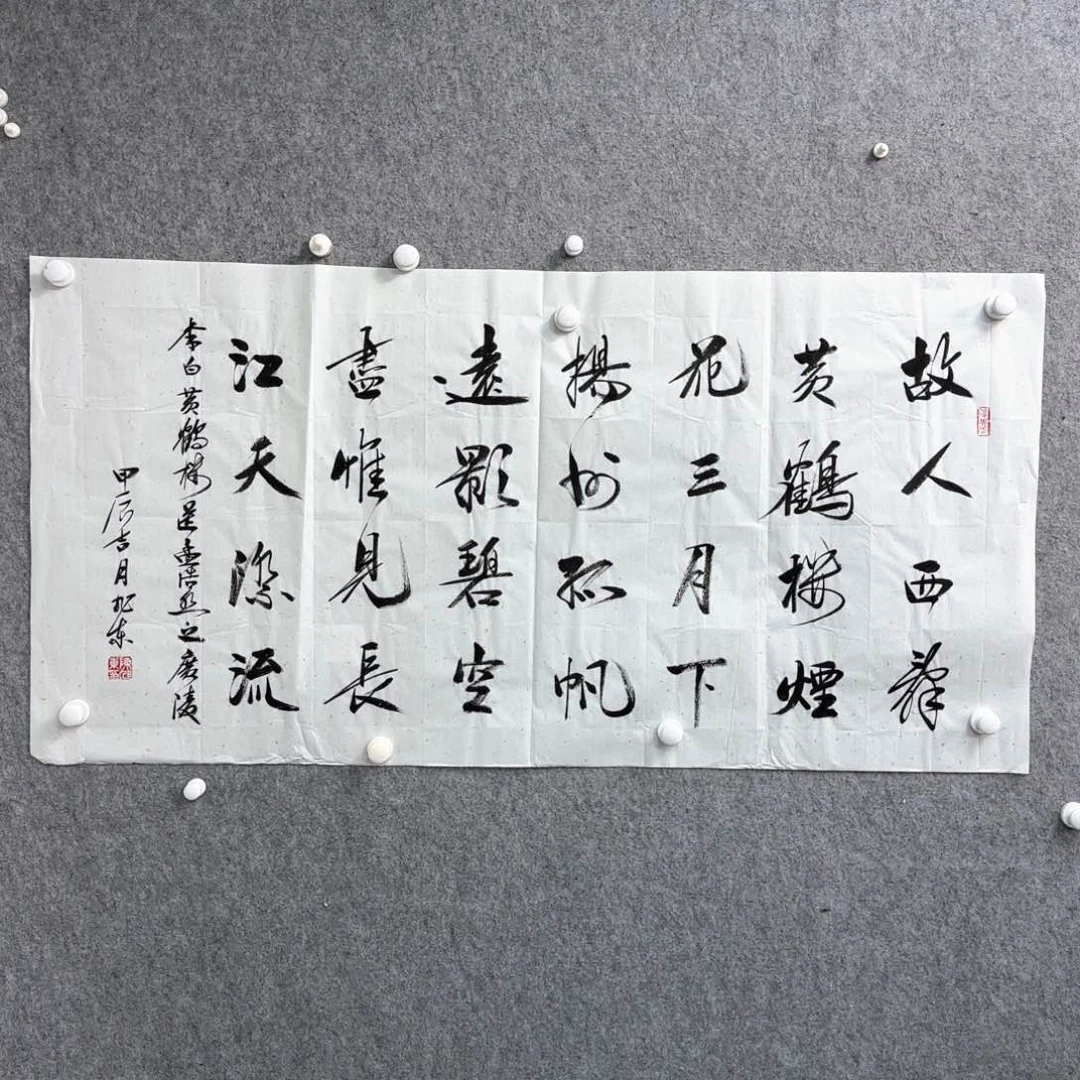 故人西辭
黄鶴樓煙
花三月下
揚州孤帆
遠影碧空
盡惟見長
江天際流
李白黄鶴樓送孟浩然之廣陵
甲辰吉月旭东